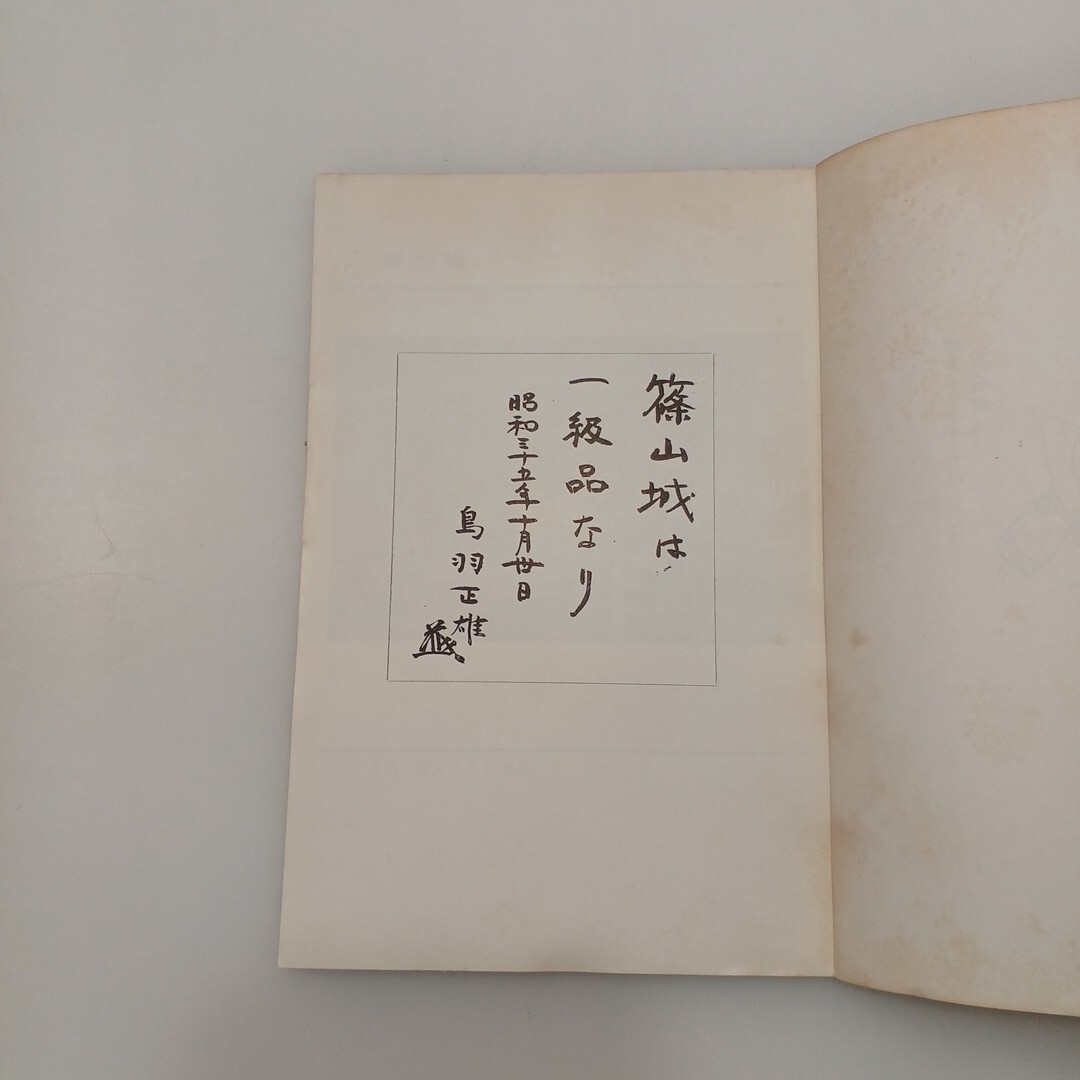 篠山城は
一級品なり
昭和三十五年十月卅日
鳥羽正雄